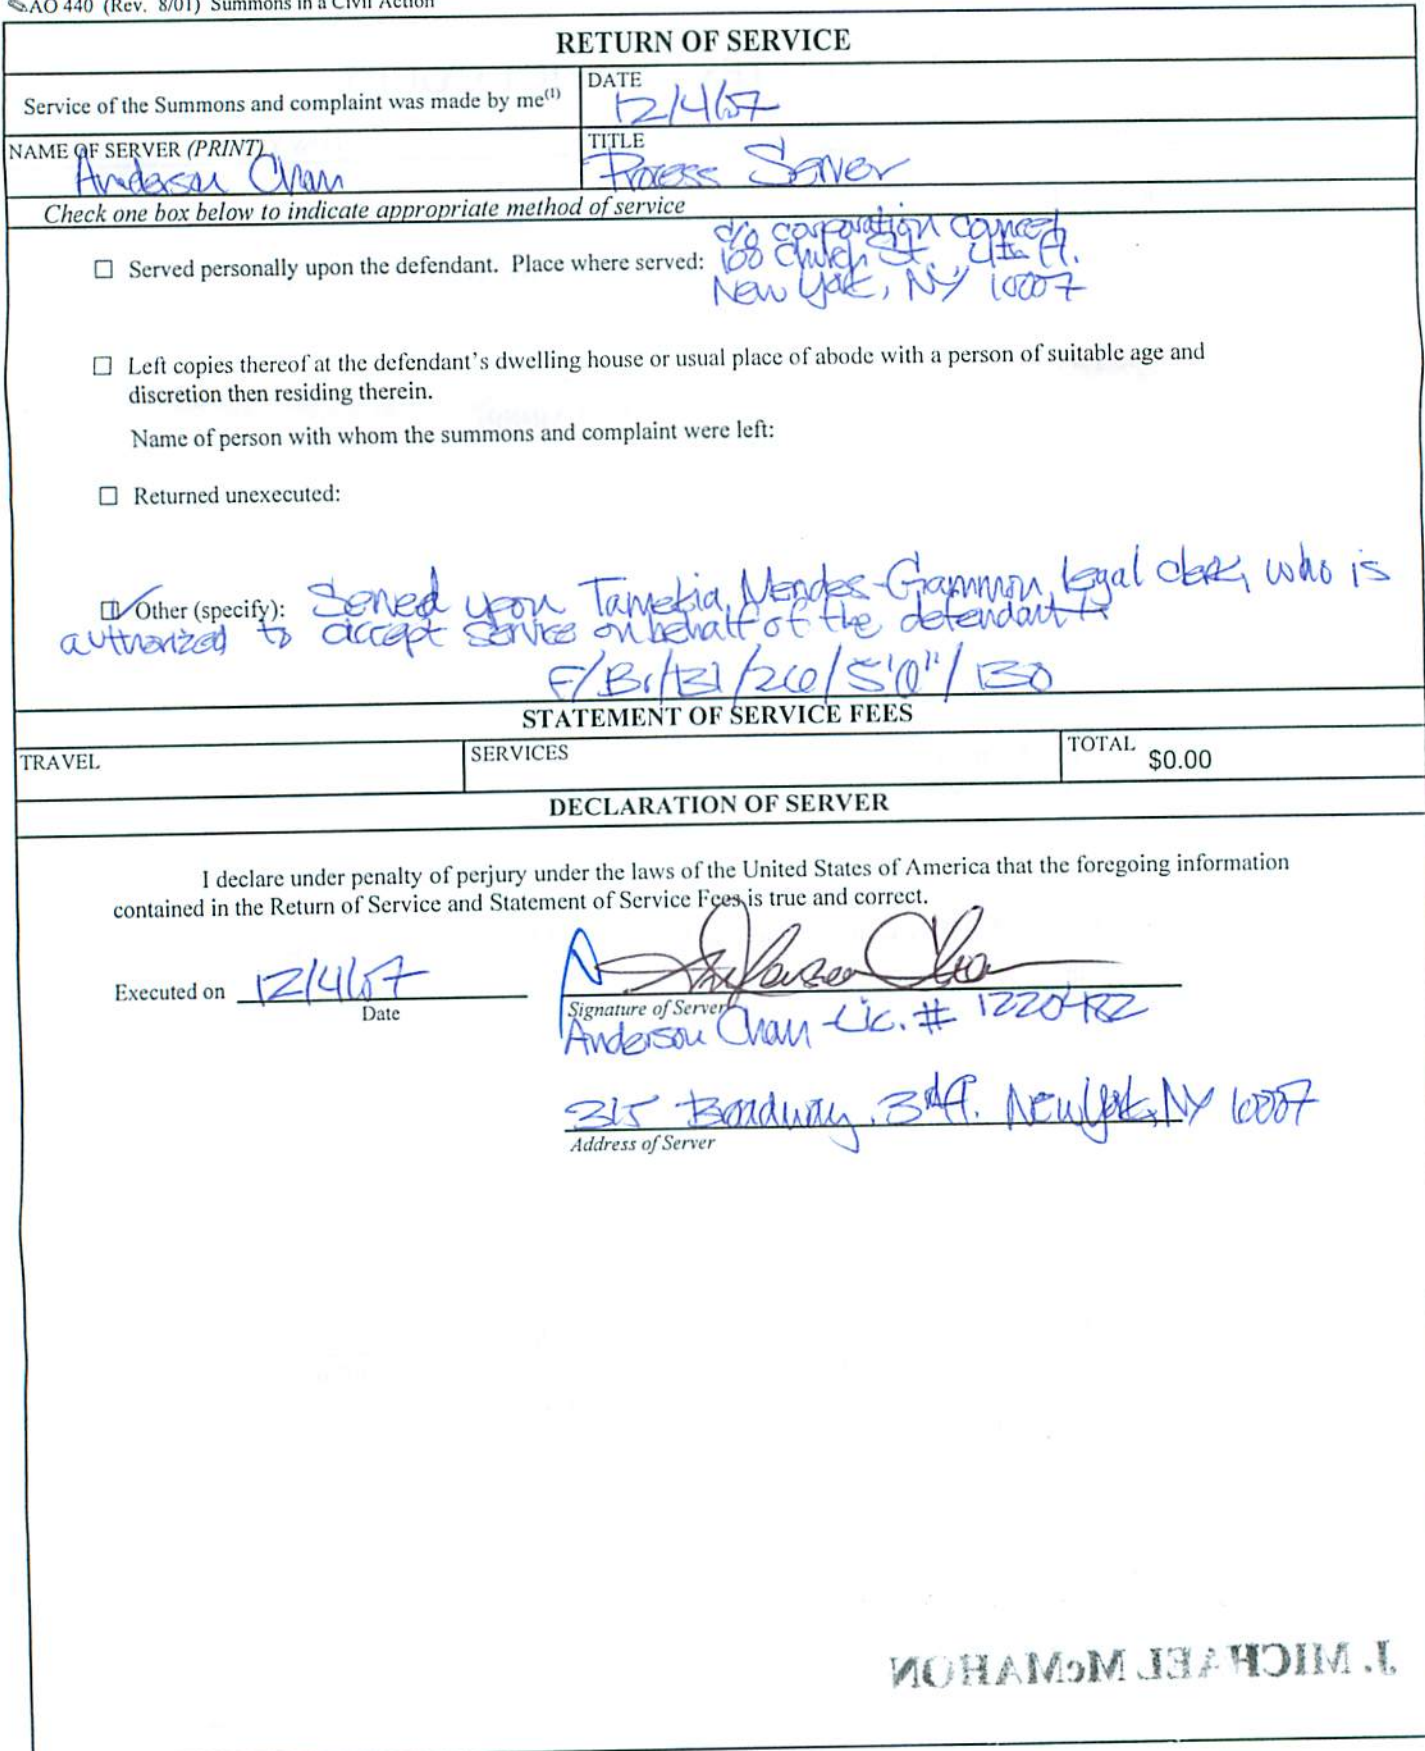 AO 440 (Rev. 8/01) Summons in a Civil Action
RETURN OF SERVICE
Service of the Summons and complaint was made by me(1)
DATE
12/4/07
NAME OF SERVER (PRINT)
Anderson Chan
TITLE
Process Server
Check one box below to indicate appropriate method of service
☐ Served personally upon the defendant. Place where served: c/o corporation counsel
100 Church St., 4th Fl.
New York, NY 10007
☐ Left copies thereof at the defendant's dwelling house or usual place of abode with a person of suitable age and
discretion then residing therein.
Name of person with whom the summons and complaint were left:
☐ Returned unexecuted:
☑ Other (specify): Served upon Tamekia Mendes-Gammon, legal clerk, who is
authorized to accept service on behalf of the defendant
STATEMENT OF SERVICE FEES
TRAVEL
SERVICES
TOTAL
$0.00
DECLARATION OF SERVER
I declare under penalty of perjury under the laws of the United States of America that the foregoing information
contained in the Return of Service and Statement of Service Fees is true and correct.
Executed on 12/4/07
Date
Anderson Chan
Signature of Server
Anderson Chan - Lic. # 1220482
315 Broadway, 3rd Fl. New York, NY 10007
Address of Server
J. MICHAEL McMAHON